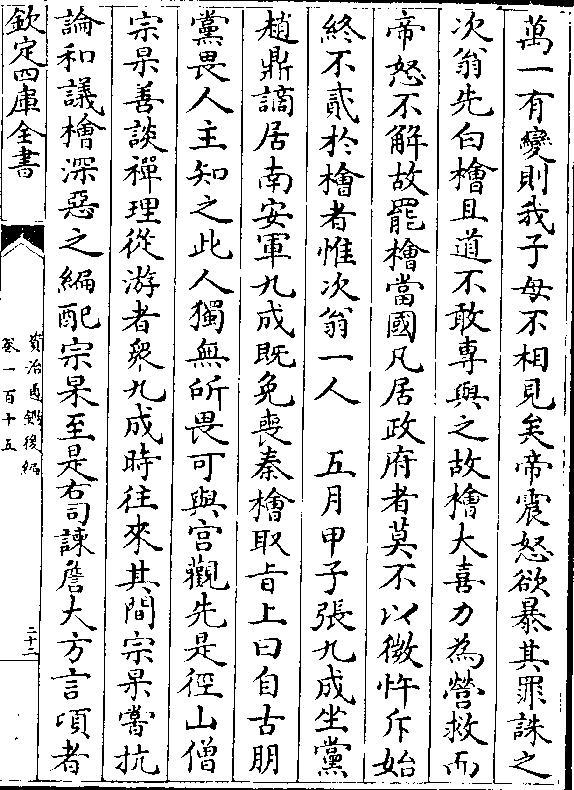 萬一有變則我子母不相見矣帝震怒欲暴其罪誅之
次翁先白檜且道不敢專與之故檜大喜力為營救而
帝怒不解故罷檜當國凡居政府者莫不以微忤斥始
終不貳於檜者惟次翁一人　五月甲子張九成坐黨
趙鼎謫居南安軍九成既免喪秦檜取旨上曰自古朋
黨畏人主知之此人獨無所畏可與宮觀先是徑山僧
宗杲善談禪理從游者衆九成時往來其間宗杲嘗抗
論和議檜深惡之編配宗杲至是右司諫詹大方言頃者
欽定四庫全書
資治通鑑後編
卷一百十五
二十二